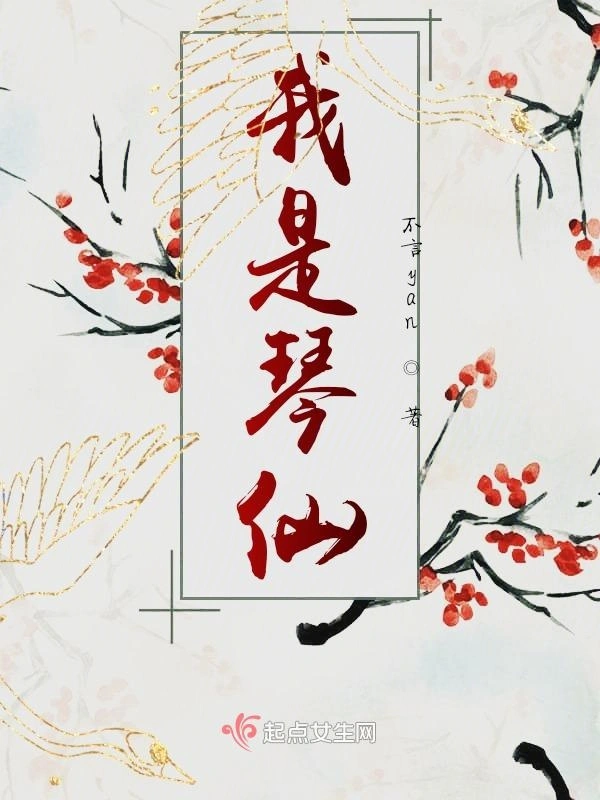 我是琴仙
不言yan ◎ 著
起点女生网